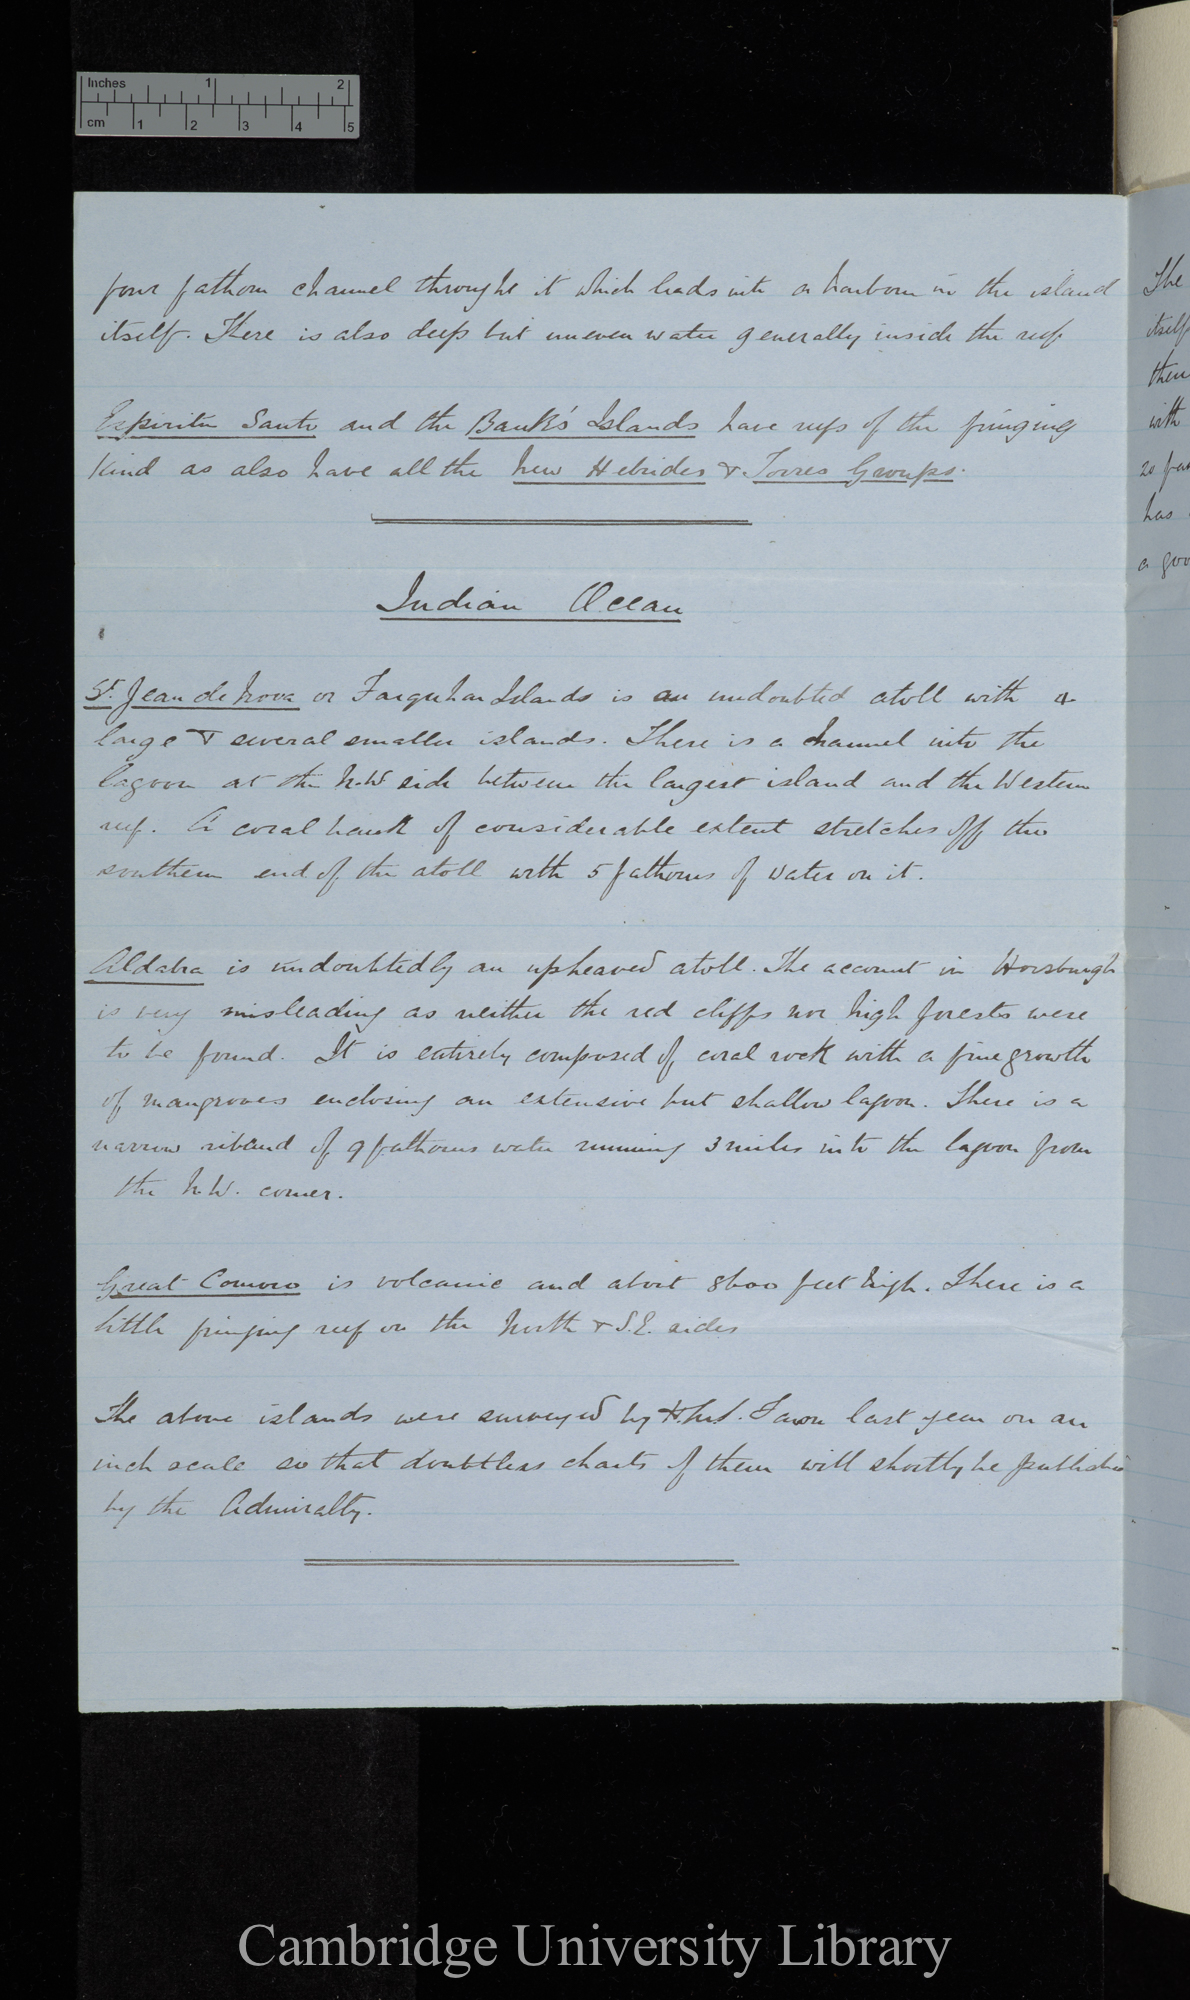 Inches 1 2
cm 1 2 3 4 5
four fathom channel through it which leads into a harbour in the island
itself. There is also deep but uneven water generally inside the reef
Espiritu Santo and the Banks' Islands have reefs of the fringing
kind as also have all the New Hebrides & Torres Groups.
Indian Ocean
St. Jean de Nova or Farquhar Islands is an undoubted atoll with 4
large & several smaller islands. There is a channel into the
lagoon at the N.W side between the largest island and the Western
reef. A coral bank of considerable extent stretches off the
southern end of the atoll with 5 fathoms of water on it.
Aldabra is undoubtedly an upheaved atoll. The account in Horsburgh
is very misleading as neither the red cliffs nor high forests were
to be found. It is entirely composed of coral rock with a fine growth
of mangroves enclosing an extensive but shallow lagoon. There is a
narrow riband of 9 fathoms water running 3 miles into the lagoon from
the N.W. corner.
Great Comoro is volcanic and about 8600 feet high. There is a
little fringing reef on the North & S.E. sides
The above islands were surveyed by H.M.S. Fawn last year on an
inch scale so that doubtless charts of them will shortly be published
by the Admiralty.
The
itself
then
with
20
has
a
Cambridge University Library